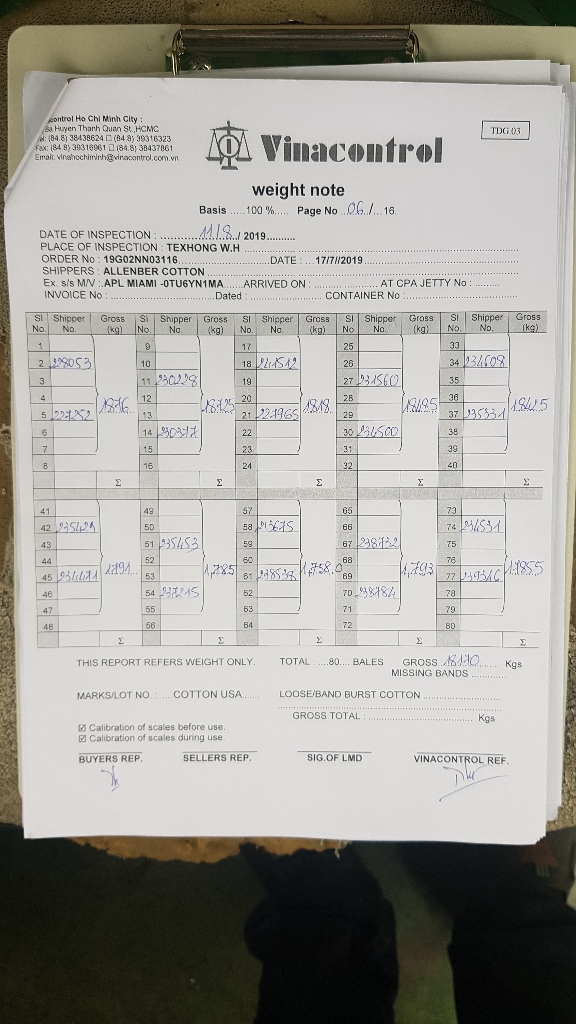 control Ho Chi Minh City :
Huyen Thanh Quan St.,HCMC
(84.8) 38438624 □ (84.8) 39316323
Fax: (84.8) 39316961 □ (84.8) 38437861
Email: vinahochiminh@vinacontrol.com.vn
Vinacontrol
TDG.03
weight note
Basis .....100 %..... Page No ..06./....16.
DATE OF INSPECTION : ...............11/8../ 2019..........
PLACE OF INSPECTION : TEXHONG W.H
ORDER No : 19G02NN03116.............................DATE : ....17/7//2019
SHIPPERS : ALLENBER COTTON
Ex. s/s M/V :.APL MIAMI -0TU6YN1MA......ARRIVED ON : ................... AT CPA JETTY No : ........
INVOICE No :...............................Dated : ..................... CONTAINER No :...............................
Sl No. Shipper No. Gross (kg) Sl No. Shipper No. Gross (kg) Sl No. Shipper No. Gross (kg) Sl No. Shipper No. Gross (kg) Sl No. Shipper No. Gross (kg)
1 9 17 25 33
2 228053 10 18 241512 26 34 234608
3 11 230228 19 27 231560 35
4 1876 12 18725 20 1818 28 18485 36 1842.5
5 227252 13 21 227965 29 37 235331
6 14 230377 22 30 234500 38
7 15 23 31 39
8 16 24 32 40
Σ Σ Σ Σ Σ
41 49 57 65 73
42 235429 50 58 213675 66 74 234531
43 51 235453 59 67 238732 75
44 1791 52 1,785 60 1,758.0 68 1,793 76 1785.5
45 234471 53 61 238537 69 77 239346
46 54 237215 62 70 238784 78
47 55 63 71 79
48 56 64 72 80
Σ Σ Σ Σ Σ
THIS REPORT REFERS WEIGHT ONLY. TOTAL : ....80.... BALES GROSS .18170....... Kgs
MISSING BANDS ............
MARKS/LOT NO. : .... COTTON USA...... LOOSE/BAND BURST COTTON ...........................
GROSS TOTAL : ................................... Kgs
☑ Calibration of scales before use.
☑ Calibration of scales during use.
BUYERS REP. SELLERS REP. SIG.OF LMD VINACONTROL REF.